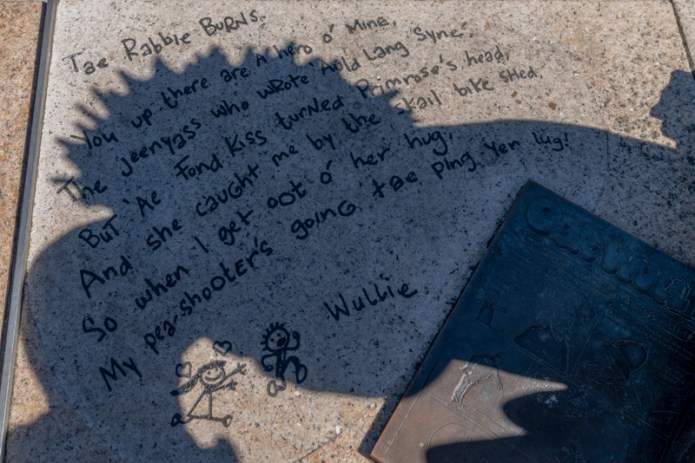 Tae Rabbie BURNS.
You up there are a hero o' mine,
The jeenyass who wrote 'Auld Lang Syne'.
BUT 'Ae Fond Kiss turned Primrose's head,
And she caught me by the skail bike shed.
So when I get oot o' her hug,
My pea-shooter's going tae ping yer lug!
Wullie
OOR WULLIE